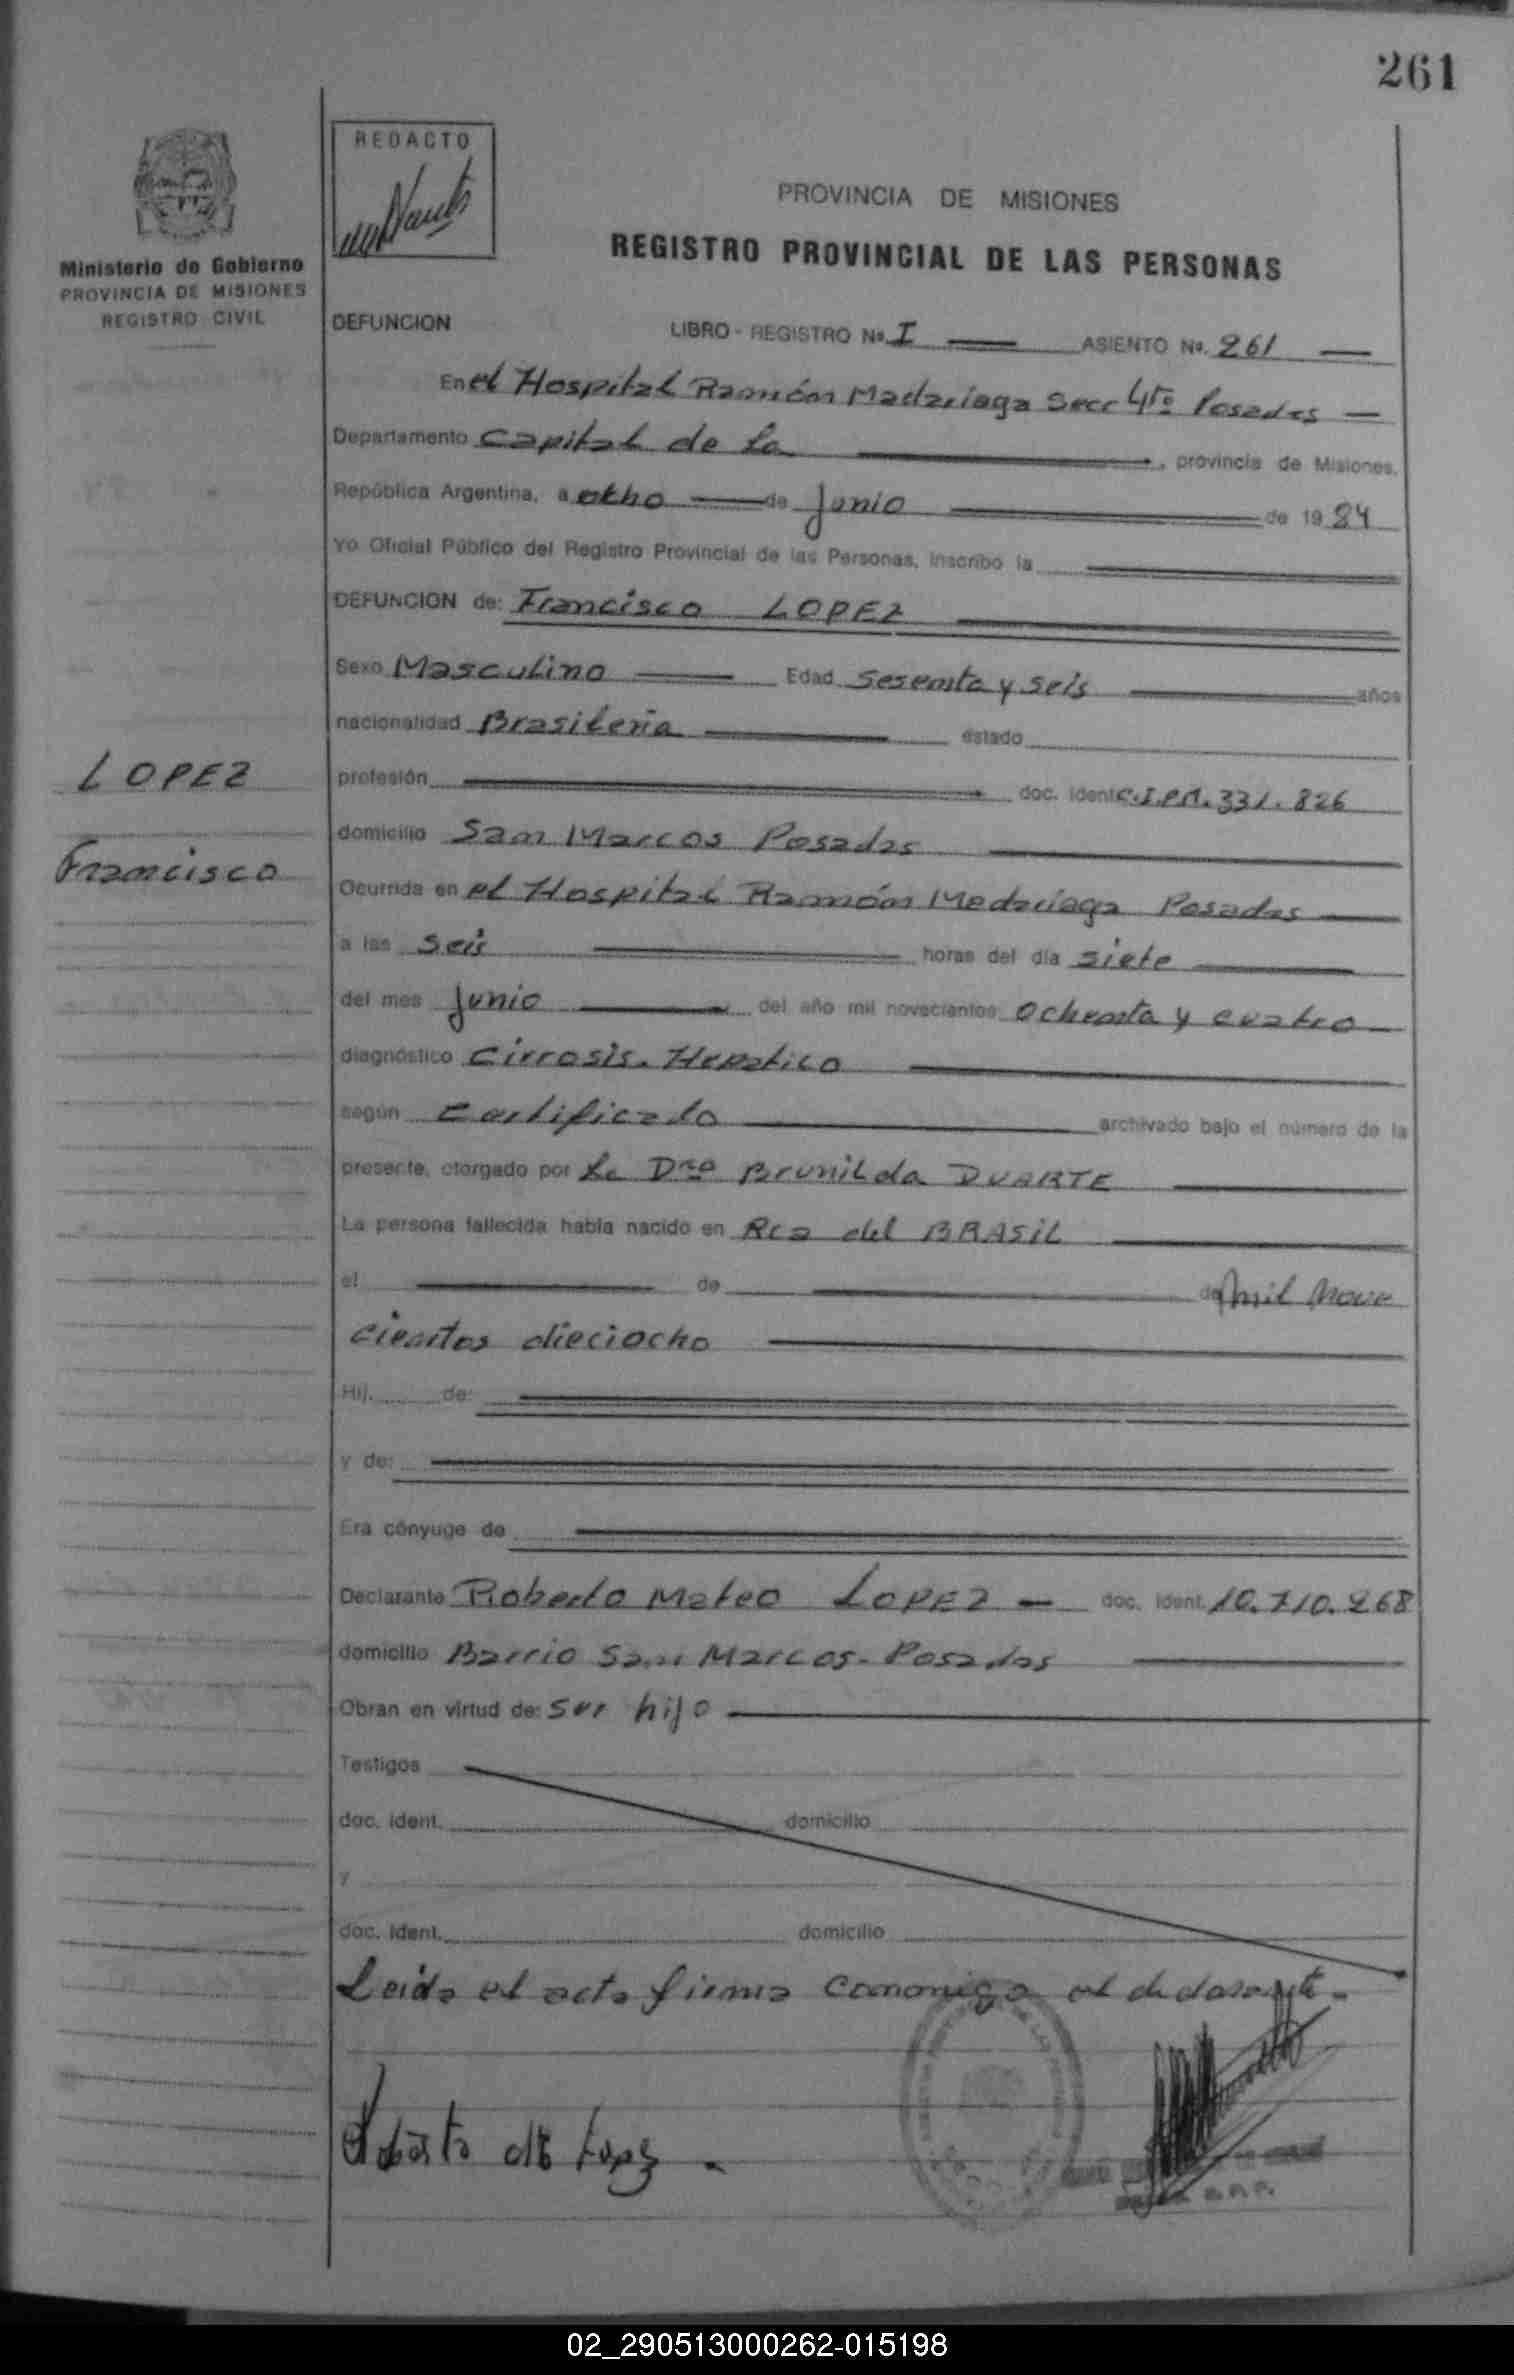 261
REDACTO
Ministerio de Gobierno
PROVINCIA DE MISIONES
REGISTRO CIVIL
PROVINCIA DE MISIONES
REGISTRO PROVINCIAL DE LAS PERSONAS
DEFUNCION LIBRO - REGISTRO Nº I ASIENTO Nº. 261
En el Hospital Ramón Madariaga Secc 4ta Posadas
Departamento Capital de la , provincia de Misiones,
República Argentina, a ocho de junio de 1984
Yo Oficial Público del Registro Provincial de las Personas, inscribo la
DEFUNCION de: Francisco LOPEZ
Sexo Masculino Edad sesenta y seis años
nacionalidad Brasileña estado
profesión doc. ident. C.I.P.M. 331.826
LOPEZ
Francisco
domicilio San Marcos Posadas
Ocurrida en el Hospital Ramón Madariaga Posadas
a las seis horas del día siete
del mes junio del año mil novecientos ochenta y cuatro
diagnóstico Cirrosis. Hepatico
según certificado archivado bajo el número de la
presente, otorgado por la Dra Brunilda DUARTE
La persona fallecida había nacido en Rca del BRASIL
el de de mil nove
cientos dieciocho
Hij. de:
y de:
Era cónyuge de
Declarante Roberto Mateo LOPEZ doc. ident. 10.710.268
domicilio Barrio San Marcos - Posadas
Obran en virtud de: ser hijo
Testigos
doc. ident. domicilio
y
doc. ident. domicilio
Leida el acta firma conmigo el declarante.